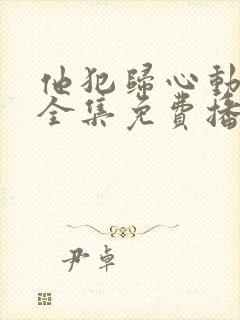 他犯歸心動
全集免費播
尹卓